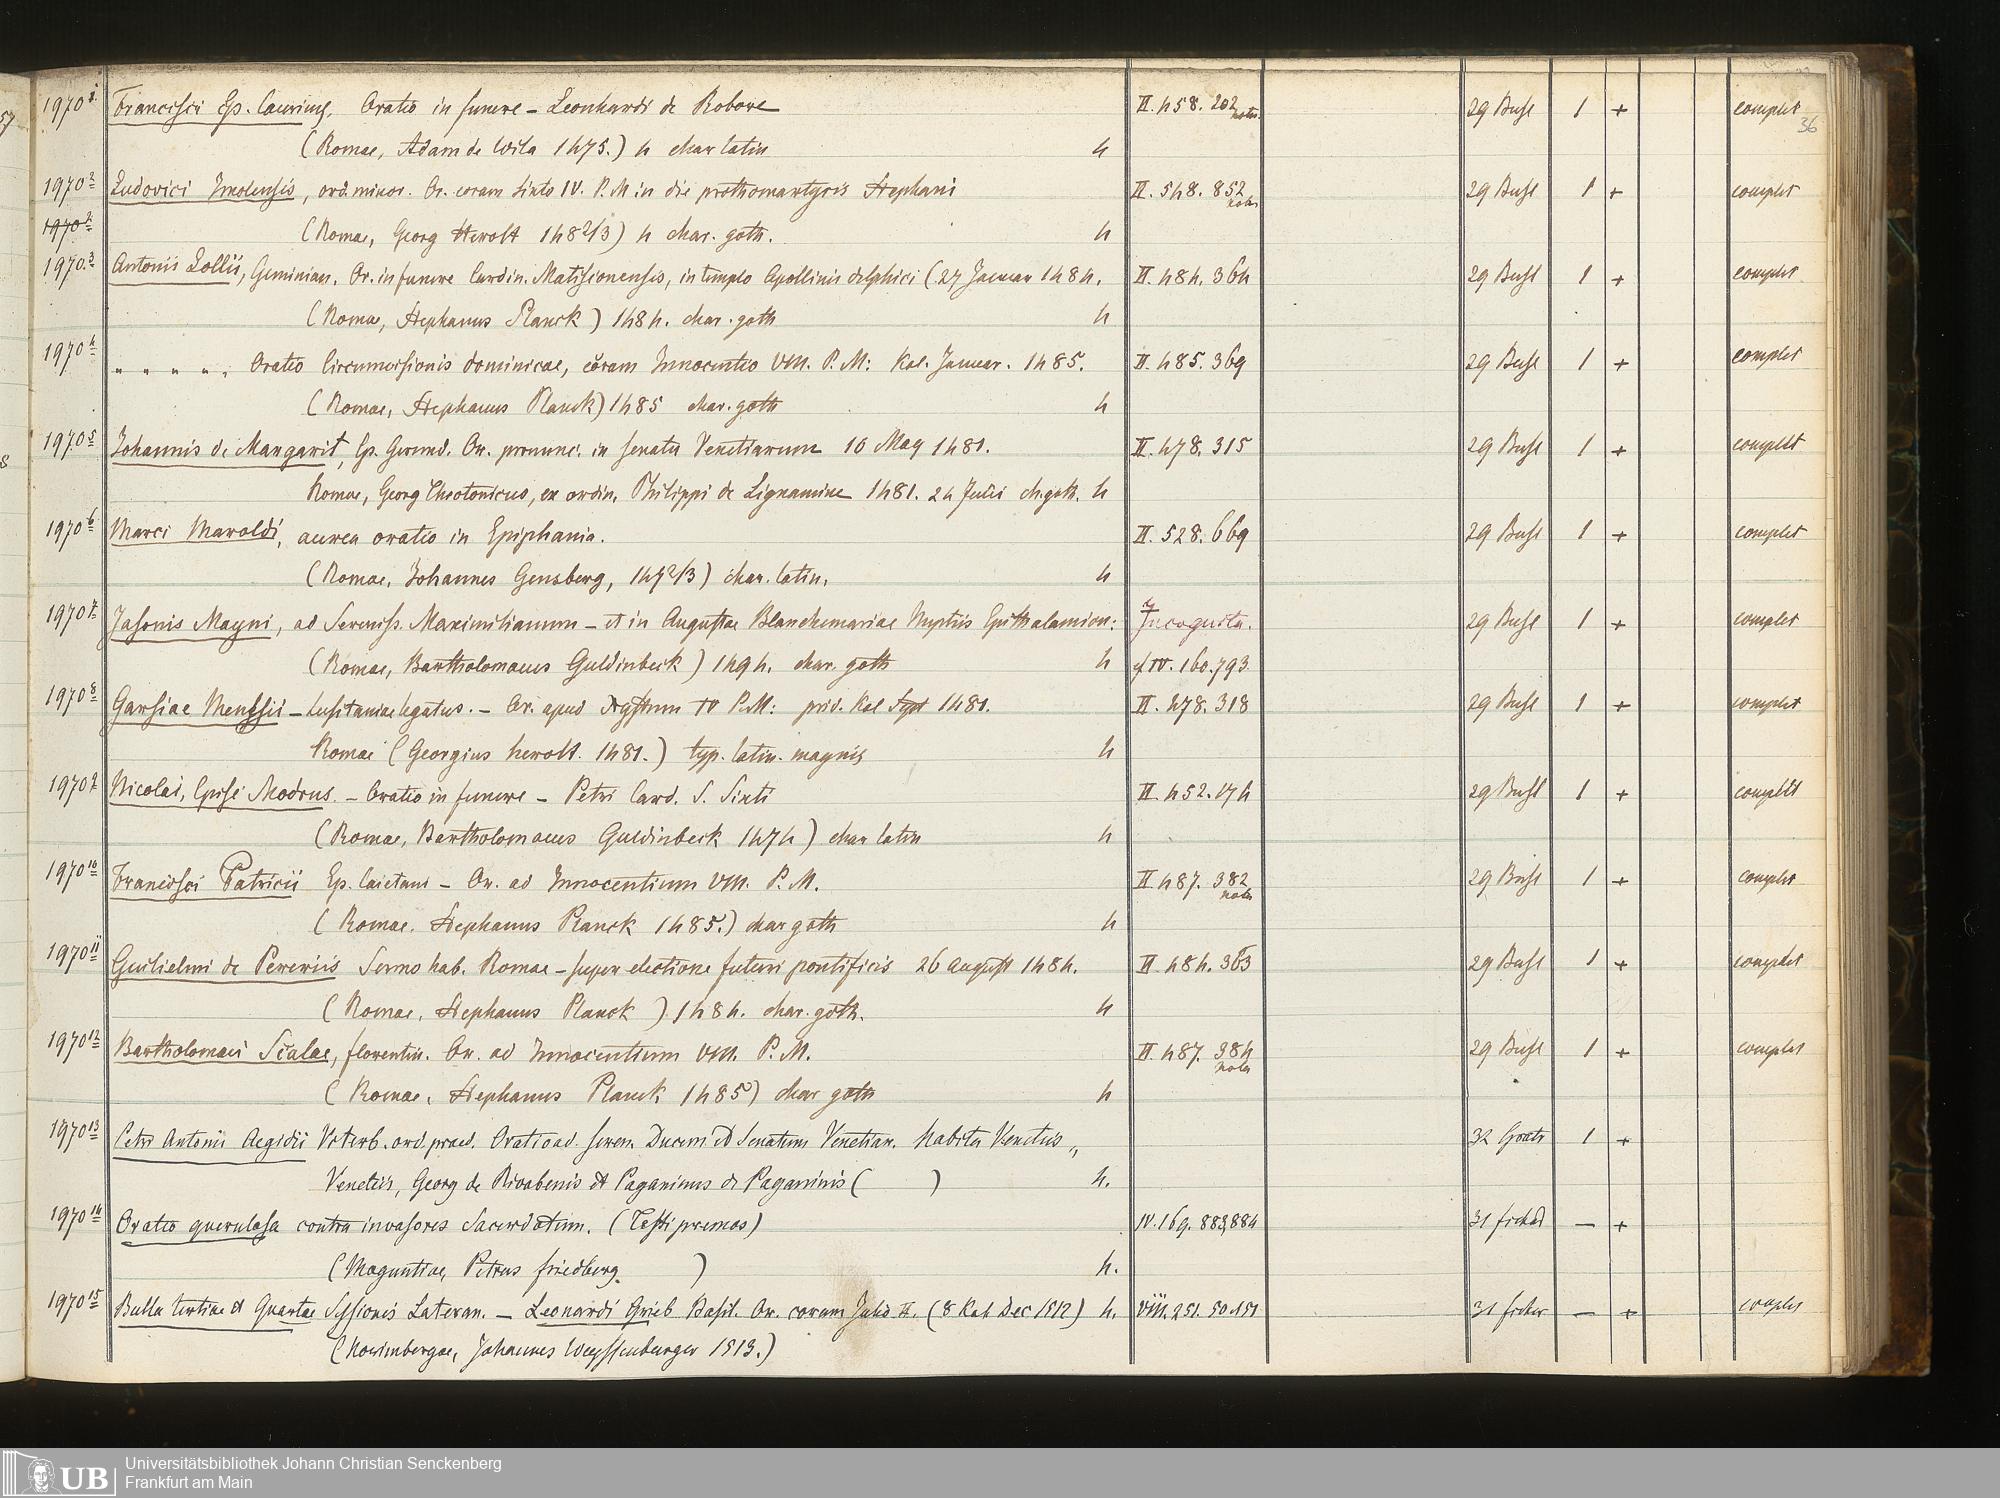 1970 1. Francisci Ep. Caurins. Oratio in funere – Leonhardi de Robore II. 458. 202 nota 29 Buhl 1 + complet
36
(Romae, Adam de Wila 1475.) 4 char latin 4
1970 2 Ludovici Imolensis, ord. minor. Or. coram Sixto IV. P. M. in die prothomartyris Stephani II. 548. 852 nota 29 Buhl 1 + complet
1970 2 (Romae, Georg Herolt 1482/3) 4 char. goth. 4
1970. 3 Antonii Lollii, Geminian. Or. in funere Cardin. Matisionensis, in templo Apollinis delphici (27 Januar 1484. II. 484. 364 29 Buhl 1 + complet
(Romae, Stephanus Planck) 1484. char. goth 4
1970 4 " " " " " Oratio Circumcisionis dominicae, coram Innocentio VIII. P. M: Kal. Januar. 1485. II. 485. 369 29 Buhl 1 + complet
(Romae, Stephanus Planck) 1485 char. goth 4
1970 5 Johannis de Margarit, Ep. Gerund. Or. pronunc. in senatu Venetiarum 10 May 1481. II. 478. 315 29 Buhl 1 + complet
Romae, Georg Theotonicus, ex ordin. Philippi de Lignamine 1481. 24 Julii ch. goth. 4
1970 6 Marci Maroldi, aurea oratio in Epiphania. II. 528. 669 29 Buhl 1 + complet
(Romae, Johannes Gensberg, 1472/3) char. latin. 4
1970 7 Jasonis Mayni, ad Sereniss. Maximilianum – et in Augustae Blanchemariae Nuptiis Epithalamion: Incognita. 29 Buhl 1 + complet
(Romae, Bartholomaeus Guldinbeck) 1494. char. goth 4 cf IV. 160. 793
1970 8 Garsiae Menesii – Lusitaniae legatus. – Or. apud IV P. M: prid. Kal Sept 1481. II. 478. 318 29 Buhl 1 + complet
Romae (Georgius herolt. 1481.) typ. latin. magnis 4
1970 9 Nicolai, Episc Modrus. – Oratio in funere – Petri Card. S. Sixti II. 452. 174 29 Buhl 1 + complet
(Romae, Bartholomaeus Guldinbeck 1474) char latin 4
1970 10 Francisci Patricii Ep. Caietani – Or. ad Innocentium VIII. P. M. II 487. 382 nota 29 Buhl 1 + complet
(Romae. Stephanus Planck 1485.) char goth 4
1970 11 Guilielmi de Pereriis Sermo hab. Romae – super electione futuri pontificis 26 August 1484. II 484. 363 29 Buhl 1 + complet
(Romae, Stephanus Planck) 1484. char. goth. 4
1970 12 Bartholomaei Scalae, florentin. Or. ad Innocentium VIII. P. M. II. 487. 384 nota 29 Buhl 1 + complet
(Romae, Stephanus Planck 1485) char goth 4
1970 13 Petri Antonii Aegidii Viterb. ord. praed. Oratio ad. seren. Ducem et Senatum Venetiar. habita Venetiis 32 1 +
Venetiis, Georg de Rivabenis et Paganinus de Paganinis ( ) 4.
1970 14 Oratio querulosa contra invasores Sacerdotum. (Testi premos) IV. 169. 883,884 31 fichard — +
(Maguntiae, Petrus friedberg. ) 4.
1970 15 Bulla tertiae et Quartae Sessionis Lateran. – Leonardi Grieb Basil. Or. coram Julio II. (8 Kal Dec 1512) 4. VIII. 251. 50 151 31 fichar — + complet
(Norimbergae, Johannes Weyssenburger 1513.)
UB Universitätsbibliothek Johann Christian Senckenberg
Frankfurt am Main